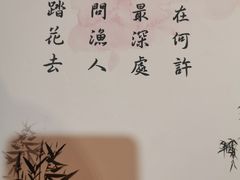 在何許
最深處
問漁人
踏花去